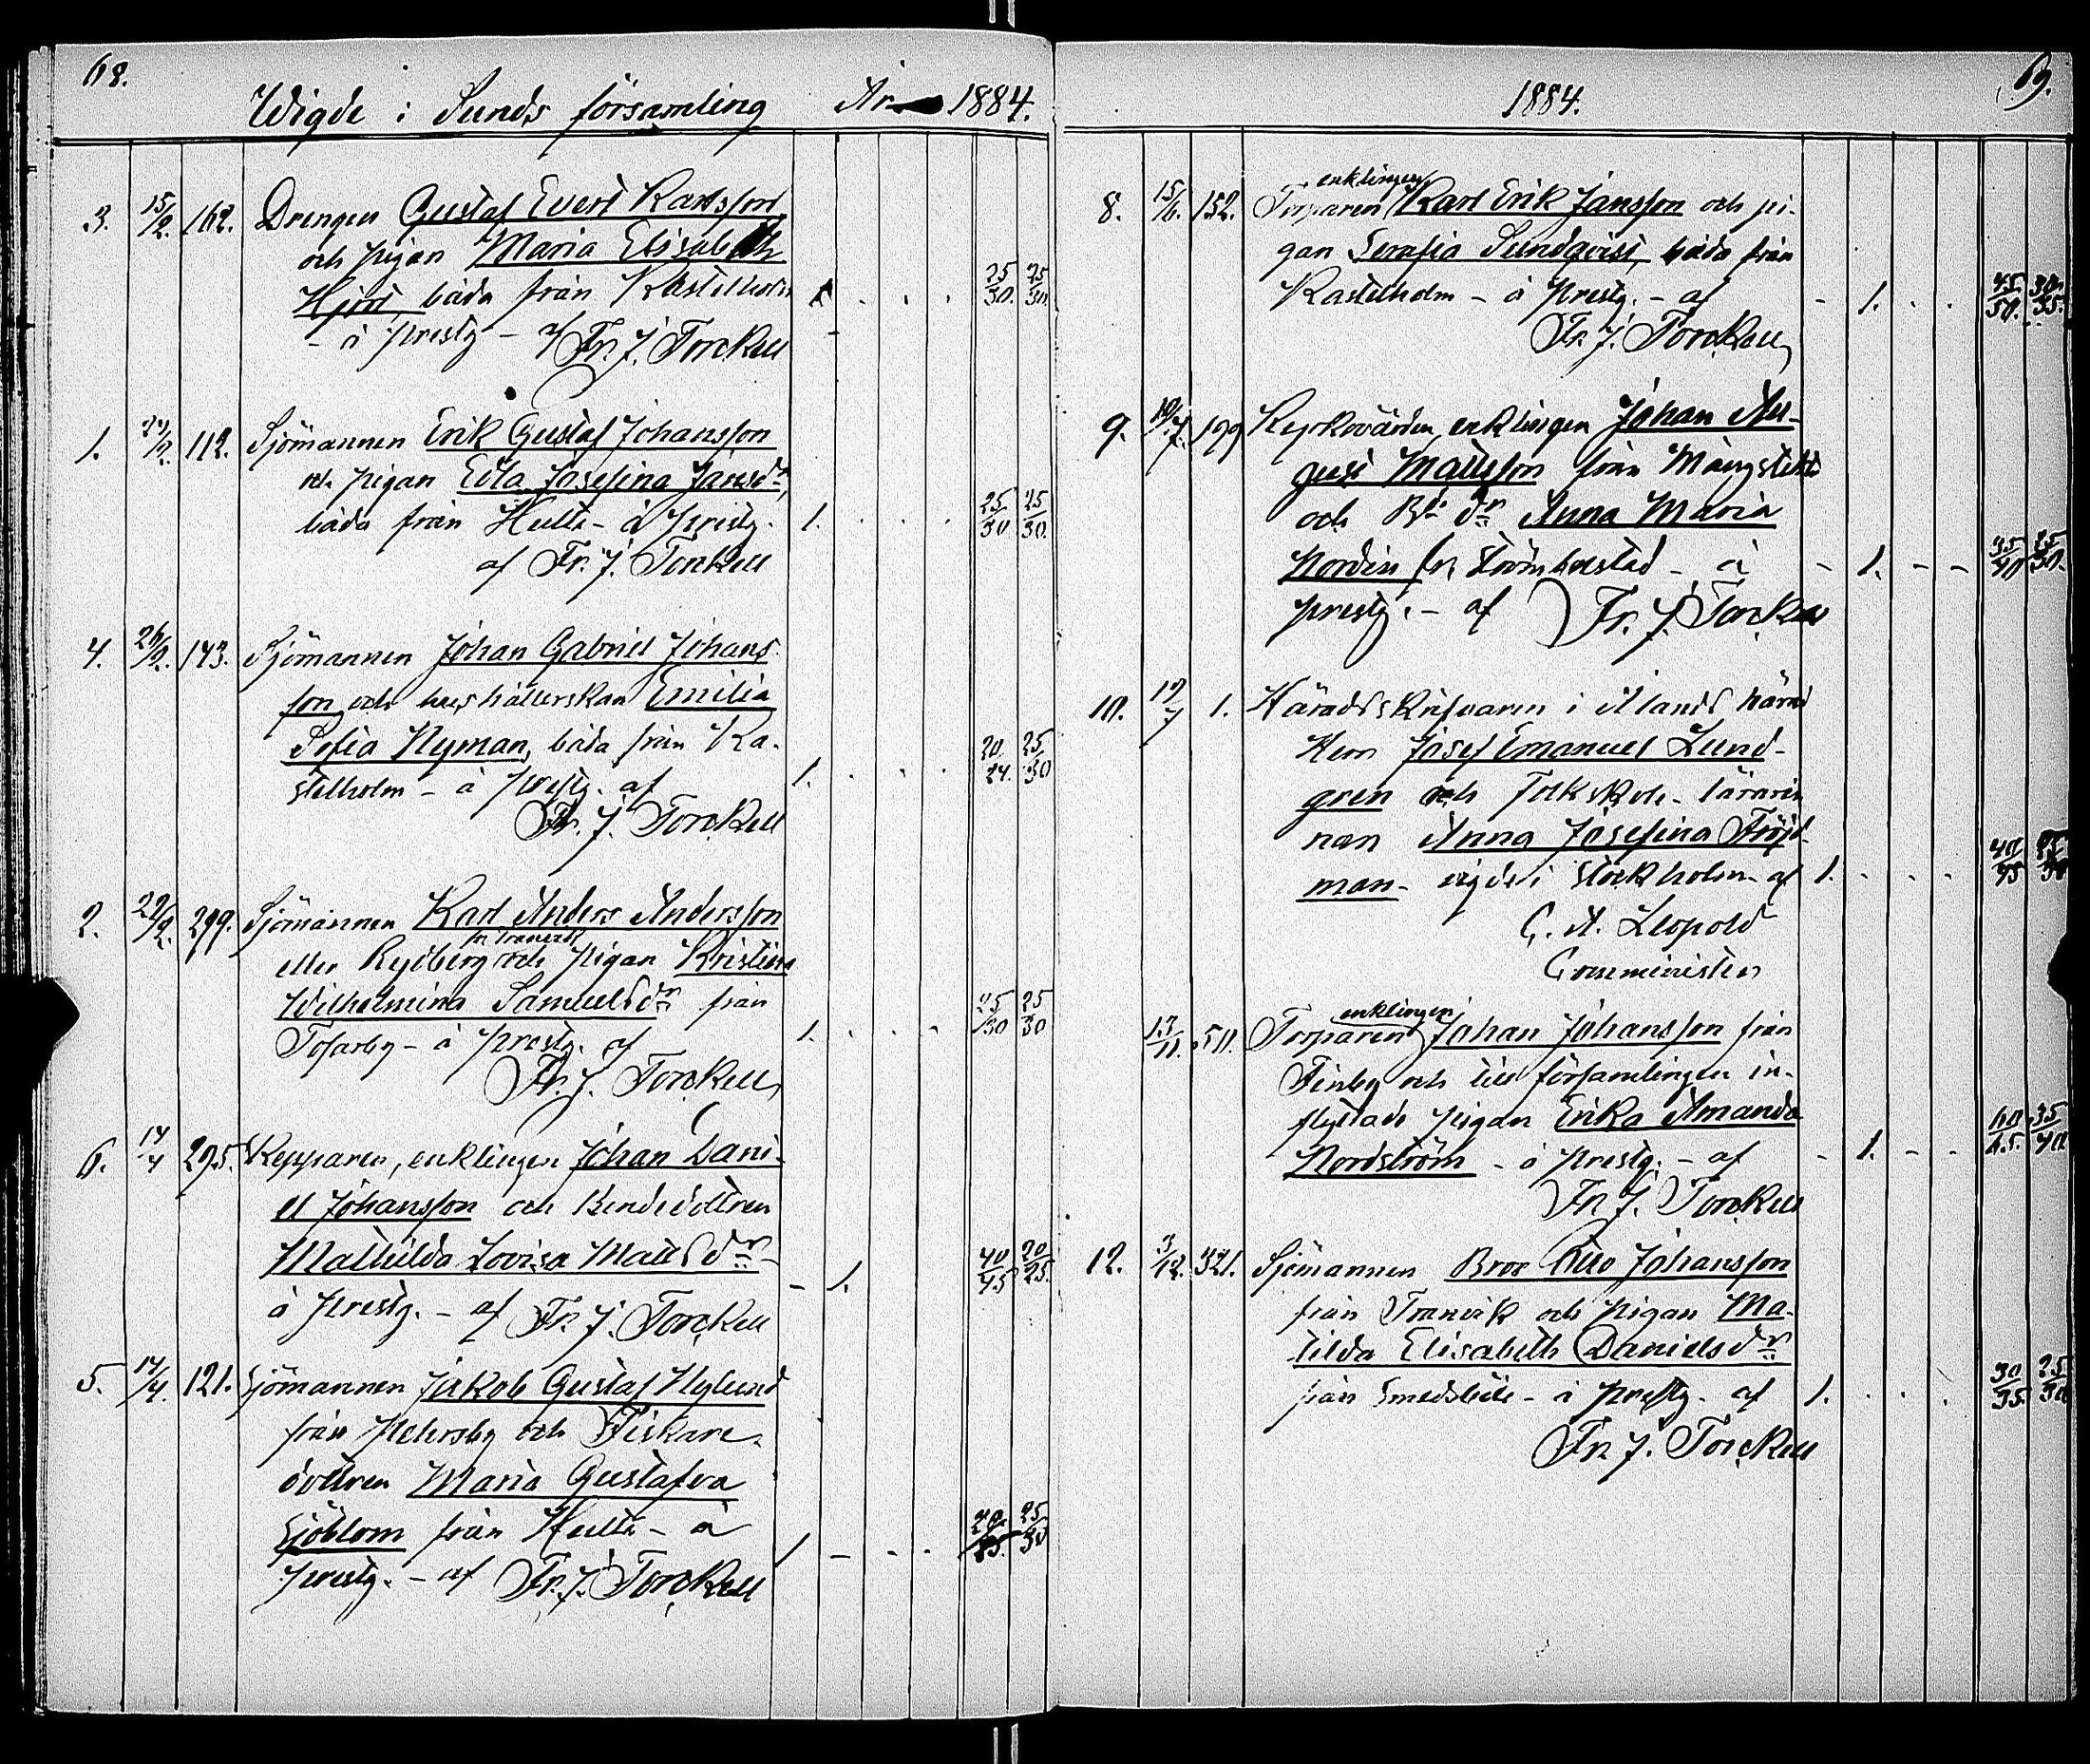 68.
Wigde i Sunds församling År 1884.
3. 15/2. 162. Drengen Gustaf Evert Karlsson
och pigan Maria Elisabeth
Hjort, båda från Kastelholm 25/30. 25/30.
- å prestg - af Fr. J. Torckell
1. 112. Sjömannen Erik Gustaf Johansson
och pigan Edla Josefina Jansdr,
båda från Hulta - å prestg. 1. 25/30 25/30.
af Fr. J. Torckell
4. 26/2. 143. Sjömannen Johan Gabriel Johans-
son och hushållerskan Emilia
Sofia Nyman, båda från Ka-
stelholm - å prestg. af 1. 20/24. 25/30
Fr. J. Torckell
2. 29/2. 299. Sjömannen Karl Anders Andersson
fr Tranvik
eller Rydberg och pigan Kristina
Wilhelmina Samuelsdr från
Tosarby - å prestg. af 1. 25/30 25/30
Fr. J. Torckell
6. 14/4 295. Kepparen, enklingen Johan Dani-
el Johansson och Bondedottren
Mathilda Lovisa Mattsdr - 1. 40/45 20/25.
å prestg. - af Fr. J. Torckell
5. 14/4. 121. Sjömannen Jakob Gustaf Nylund
från Persby och Fiskare-
dottren Maria Gustafva
Sjöblom från Hulta - å 1 25/30
prestg. - af Fr. J. Torckell
69.
1884.
enklingen
8. 15/6. 152. Torparen Karl Erik Jansson och pi-
gan Serafia Sundqvist, båda från
Kastelholm - å prestg. - af - 1. 45/50. 30/35.
Fr. J. Torckell
9. 10/7. 199 Kyrkovärden, enklingen Johan Au-
gust Mattsson från Mångstekta
och Bdr Anna Maria
Nordin fr Strömbolstad - å - 1. 25/30.
prestg. - af Fr. J. Torckell
10. 19/7 1. Häradsskrifvaren i Ålands härad
Herr Josef Emanuel Lund-
gren och Folkskole-lärarin
nan Anna Josefina Fröjd-
man - vigde i Stockholm - af 1. 40/45
C. A. Leopold
Comminister
enklingen
13/11. 50. Torparen Johan Johansson från
Finby och till församlingen in-
flyttade pigan Erika Amanda
Nordström - å prestg. - af - 1. 35/40
Fr. J. Torckell
12. 3/12. 321. Sjömannen Bror Otto Johansson
från Tranvik och pigan Ma-
tilda Elisabeth Danielsdr
från Smedsböle - å prestg. af 1. 30/35. 25/30
Fr. J. Torckell